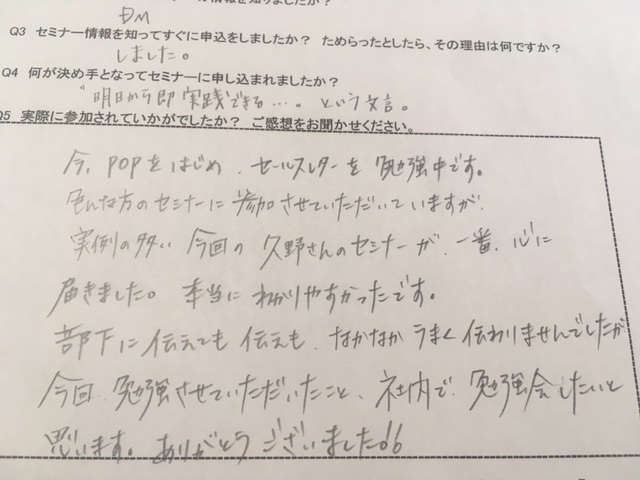 の情報を知りましたか？
DM
Q3 セミナー情報を知ってすぐに申込をしましたか？ ためらったとしたら、その理由は何ですか？
しました。
Q4 何が決め手となってセミナーに申し込まれましたか？
"明日から即実践できる…"という文言。
Q5 実際に参加されていかがでしたか？ ご感想をお聞かせください。
今、POPをはじめ、セールスレターを勉強中です。
色んな方のセミナーに参加させていただいていますが、
実例の多い今回の久野さんのセミナーが、一番、心に
届きました。本当にわかりやすかったです。
部下に伝えても伝えも、なかなかうまく伝わりませんでしたが
今回、勉強させていただいたこと、社内で、勉強会したいと
思います。ありがとうございました